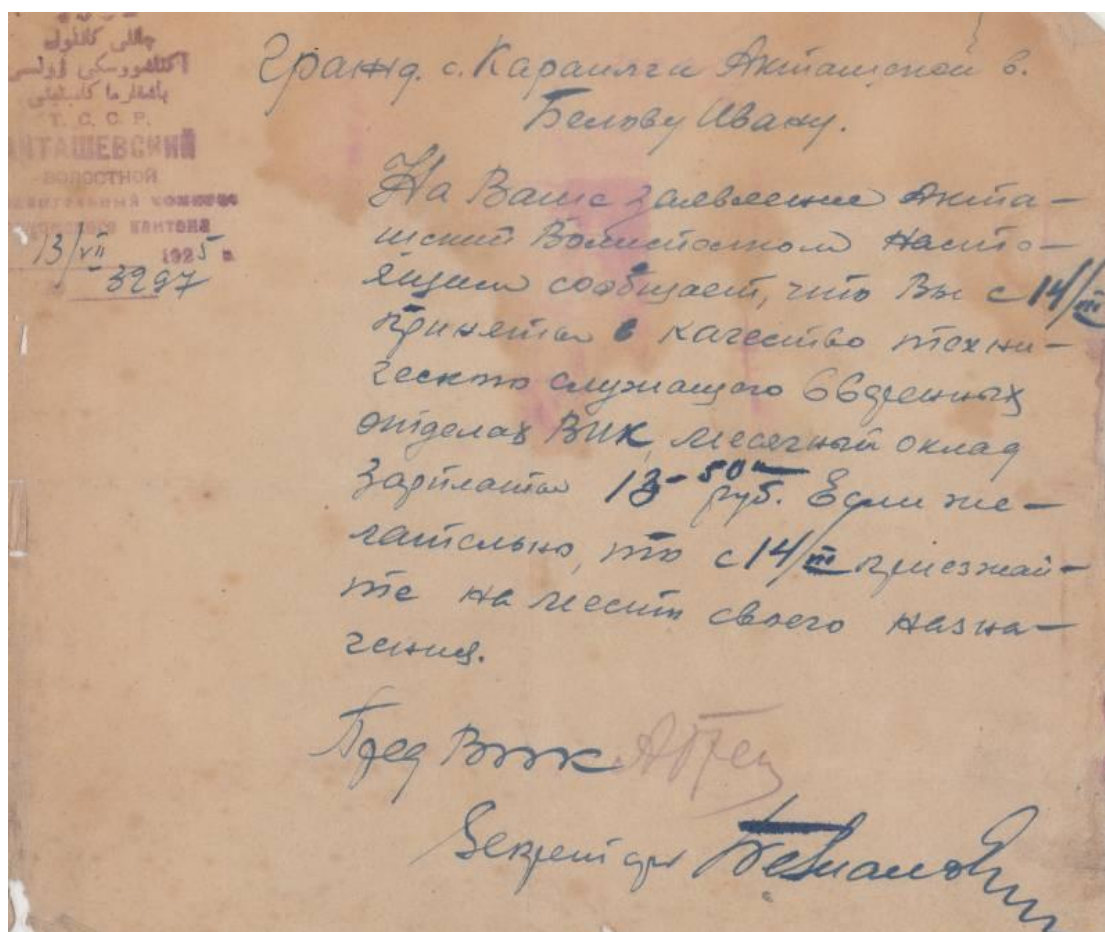 چاللی کانتون
Т. С. С. Р.
АКТАШЕВСКИЙ
ВОЛОСТНОЙ
комитет
кантона
13/VII 1925 г.
3297
Гражд. с. Караилги Акташской в.
Белову Ивану.
На Ваше заявление Акта-
шский Волисполком насто-
ящим сообщает, что Вы с 14/
приняты в качестве техни-
ческого служащего
отделах ВИК, месячный оклад
зарплаты 13-50 руб. Если же-
лательно, то с 14/ приезжай-
те на место своего назна-
чения.
Пред ВИК
Секретарь